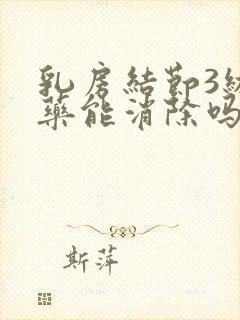 乳房結節3
藥能消除吗
斯萍